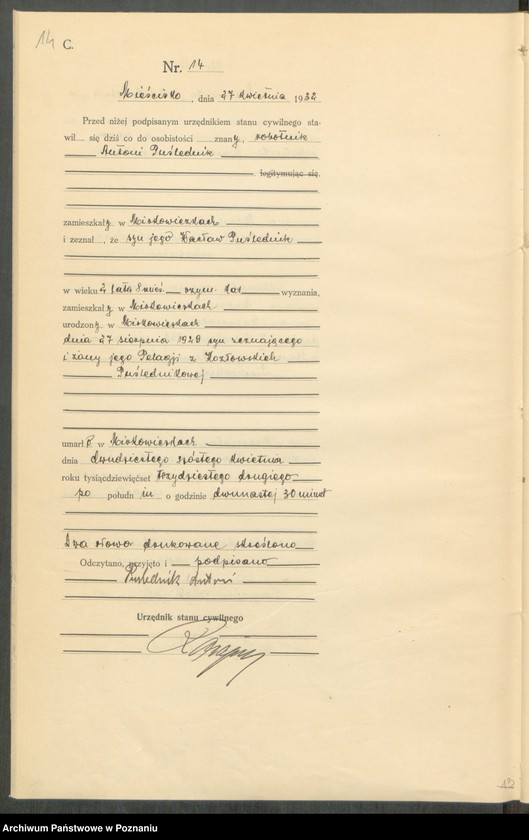 14 C.
Nr. 14
Mieścisko, dnia 27 kwietnia 1932
Przed niżej podpisanym urzędnikiem stanu cywilnego sta-
wił się dziś co do osobistości znany, robotnik
Antoni Puślednik
legitymując się,
zamieszkały w Miłkowiczkach
i zeznał, że syn jego Wacław Puślednik
w wieku 2 lata 8 mieś. rzym. kat. wyznania,
zamieszkały w
urodzony w
dnia 27 sierpnia 1929 syn zeznającego
i żony jego Pelagji z Kozłowskich
Puślednikowej
umarł w
dnia dwudziestego szóstego kwietnia
roku tysiącdziewięćset trzydziestego drugiego
po połudn iu o godzinie dwunastej 30 minut
Dwa słowa drukowane skreślono
Odczytano, przyjęto i podpisano
Puslednik Antoni
Urzędnik stanu cywilnego
Archiwum Państwowe w Poznaniu